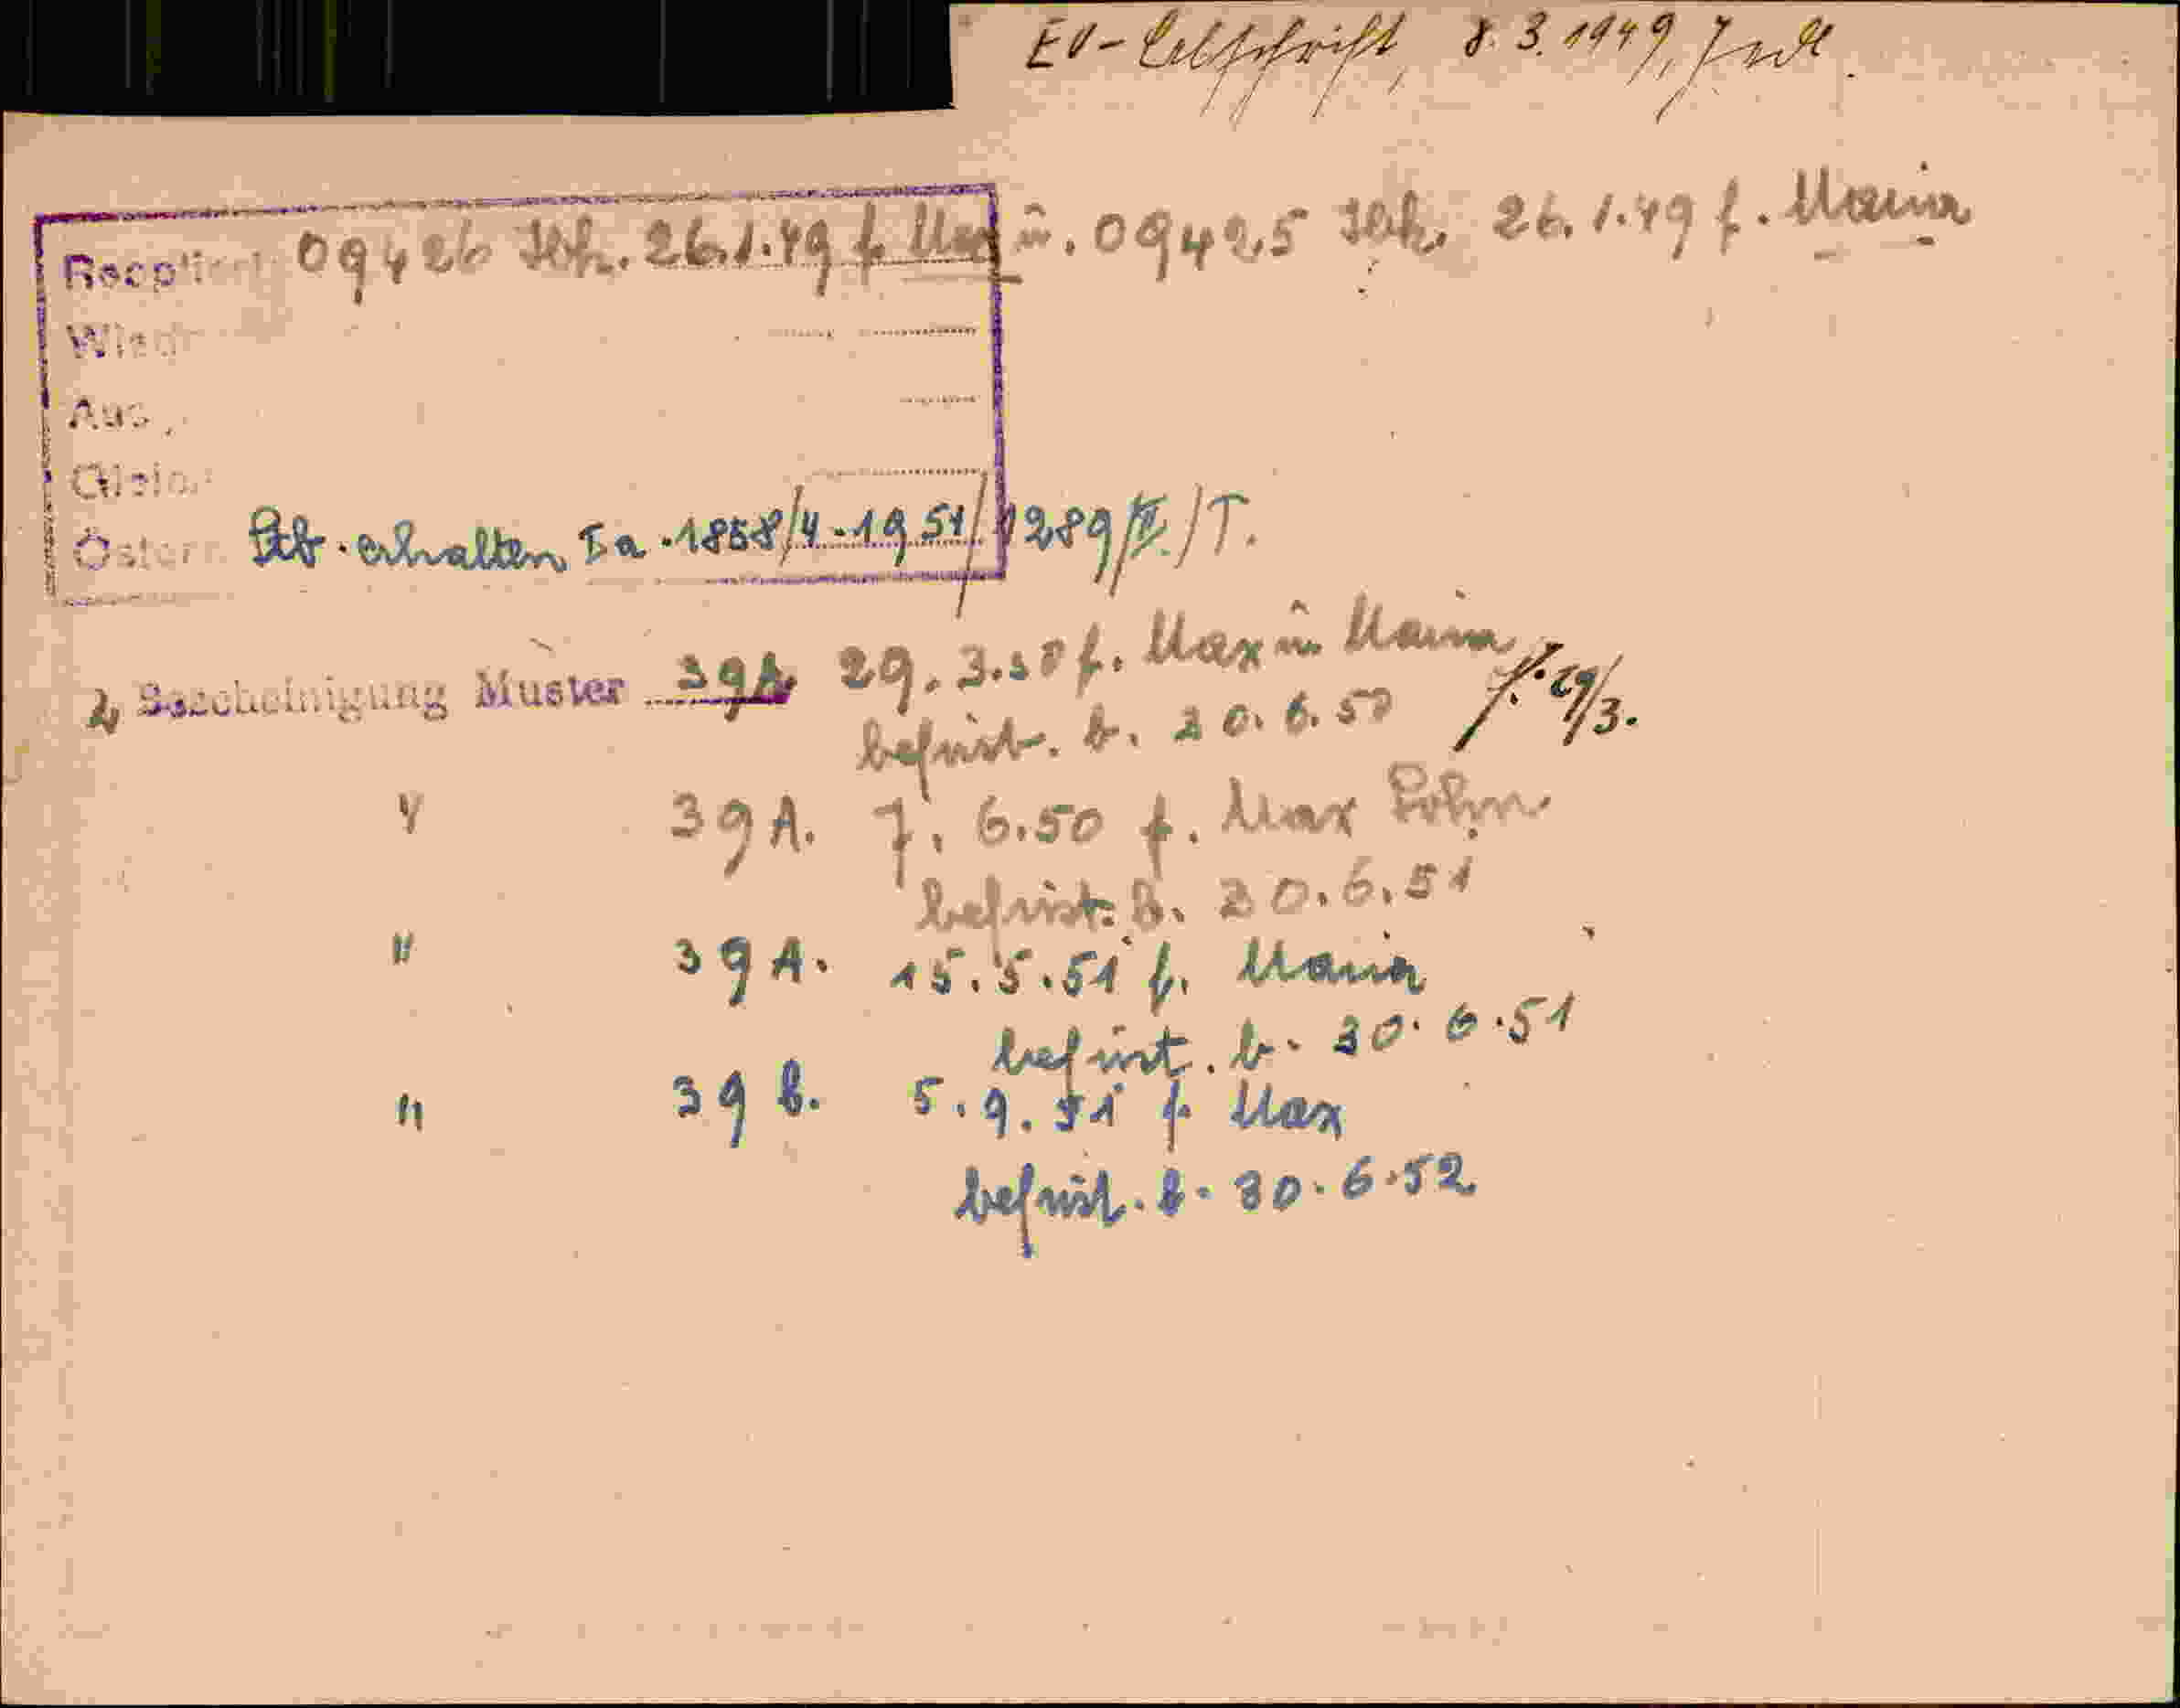 EV- 8. 3. 1949,
09426 26.1.49 f. Max u. 09425 26.1.49 f. Maria
Stb. erhalten Ia. 1858/4-1951/1289/II./T.
2, Bescheinigung Muster 39A. 29. 3. 50 f. Max u. Maria
befrist. b. 30. 6. 50 29/3.
" 39A. 7. 6. 50 f. Max
befrist. b. 30. 6. 51
" 39A. 15. 5. 51 f. Maria
befrist. b. 30. 6. 51
" 39 B. 5. 9. 51 f. Max
befrist. b. 30. 6. 52